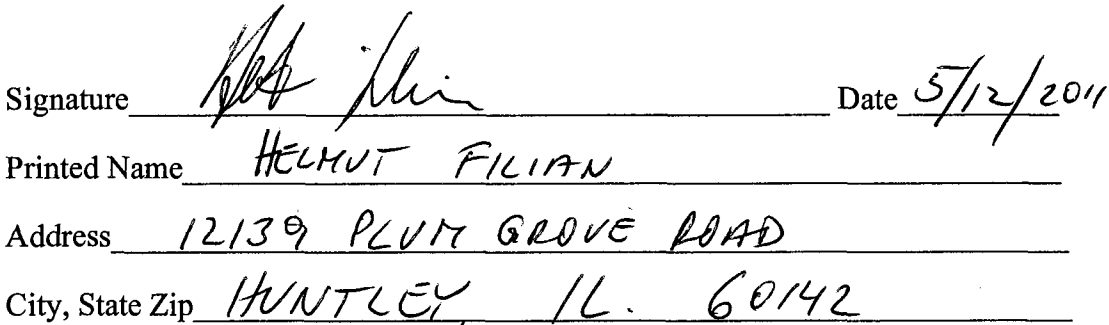 Signature Date 5/12/2011
Printed Name HELMUT FILIAN
Address 12139 PLUM GROVE ROAD
City, State Zip HUNTLEY, IL. 60142